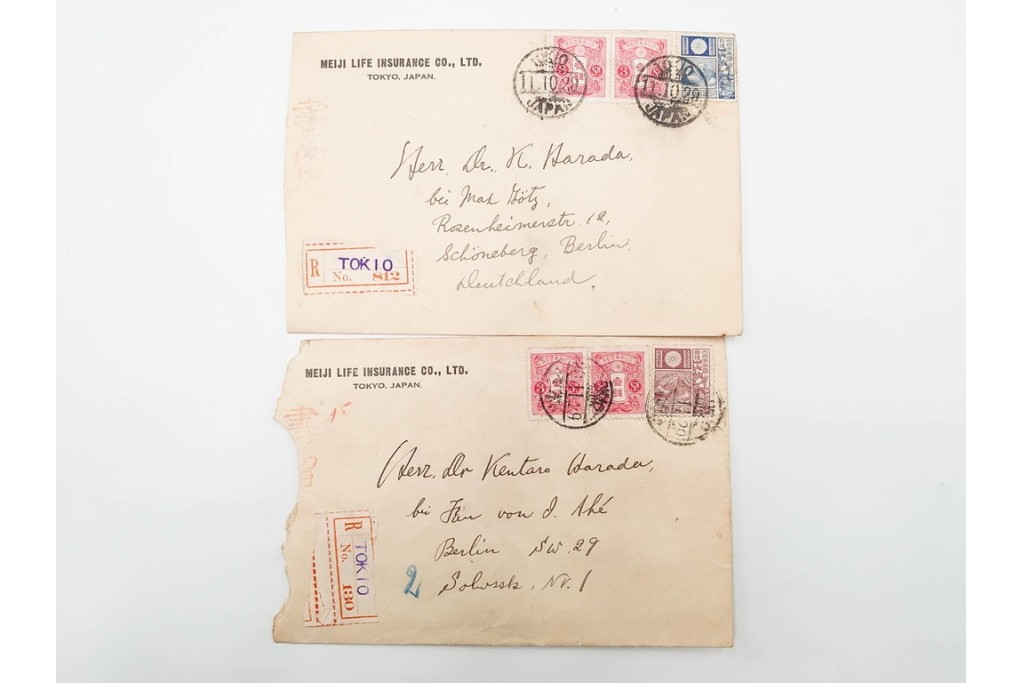 MEIJI LIFE INSURANCE CO., LTD.
TOKYO, JAPAN.
TOKIO
11.10.29
JAPAN
TOKIO
11.10.29
JAPAN
Herr. Dr. K. Harada,
bei Max Götz,
Rosenheimerstr. 12,
Schöneberg, Berlin
Deutchland.
R TOKIO
No. 812
MEIJI LIFE INSURANCE CO., LTD.
TOKYO, JAPAN.
書留
15
Herr. Dr Kentaro Harada,
bei von J. Ahé
Berlin SW. 29
Nr. 1
R TOKIO
No. 130
2